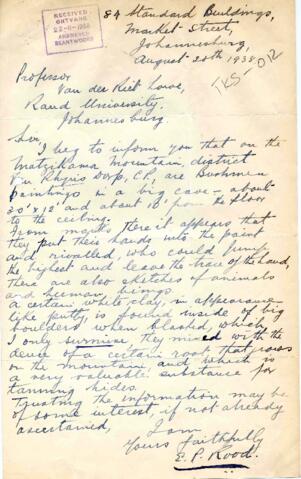 RECEIVED
ONTVANG
ANSWERED
BEANTWOORD
84 Standard Buildings,
Market Street,
Johannesburg,
August 20th 1938
TES-012
Professor
Van der Riet Lowe,
Rand University.
Johannesburg.
Sir,
I beg to inform you that on the
Matzikama Mountain, district
Van Rhyns Dorp, C.P., are Bushmen
paintings in a big cave - about
30' x 12' and about 10' from the floor
to the ceiling.
From marks there it appears that
they put their hands into the paint
and rivalled, who could jump
the highest and leave the trace of the hand,
there are also sketches of animals
and human beings.
A certain white clay, in appearance
like putty, is found inside of big
boulders when blasted, which,
I only surmise, they mixed with the
of a certain root, that grows
on the mountain and which is
a very valuable substance for
tanning hides.
Trusting the information may be
of some interest, if not already
ascertained,
I am
Yours faithfully
E. P. Rood.